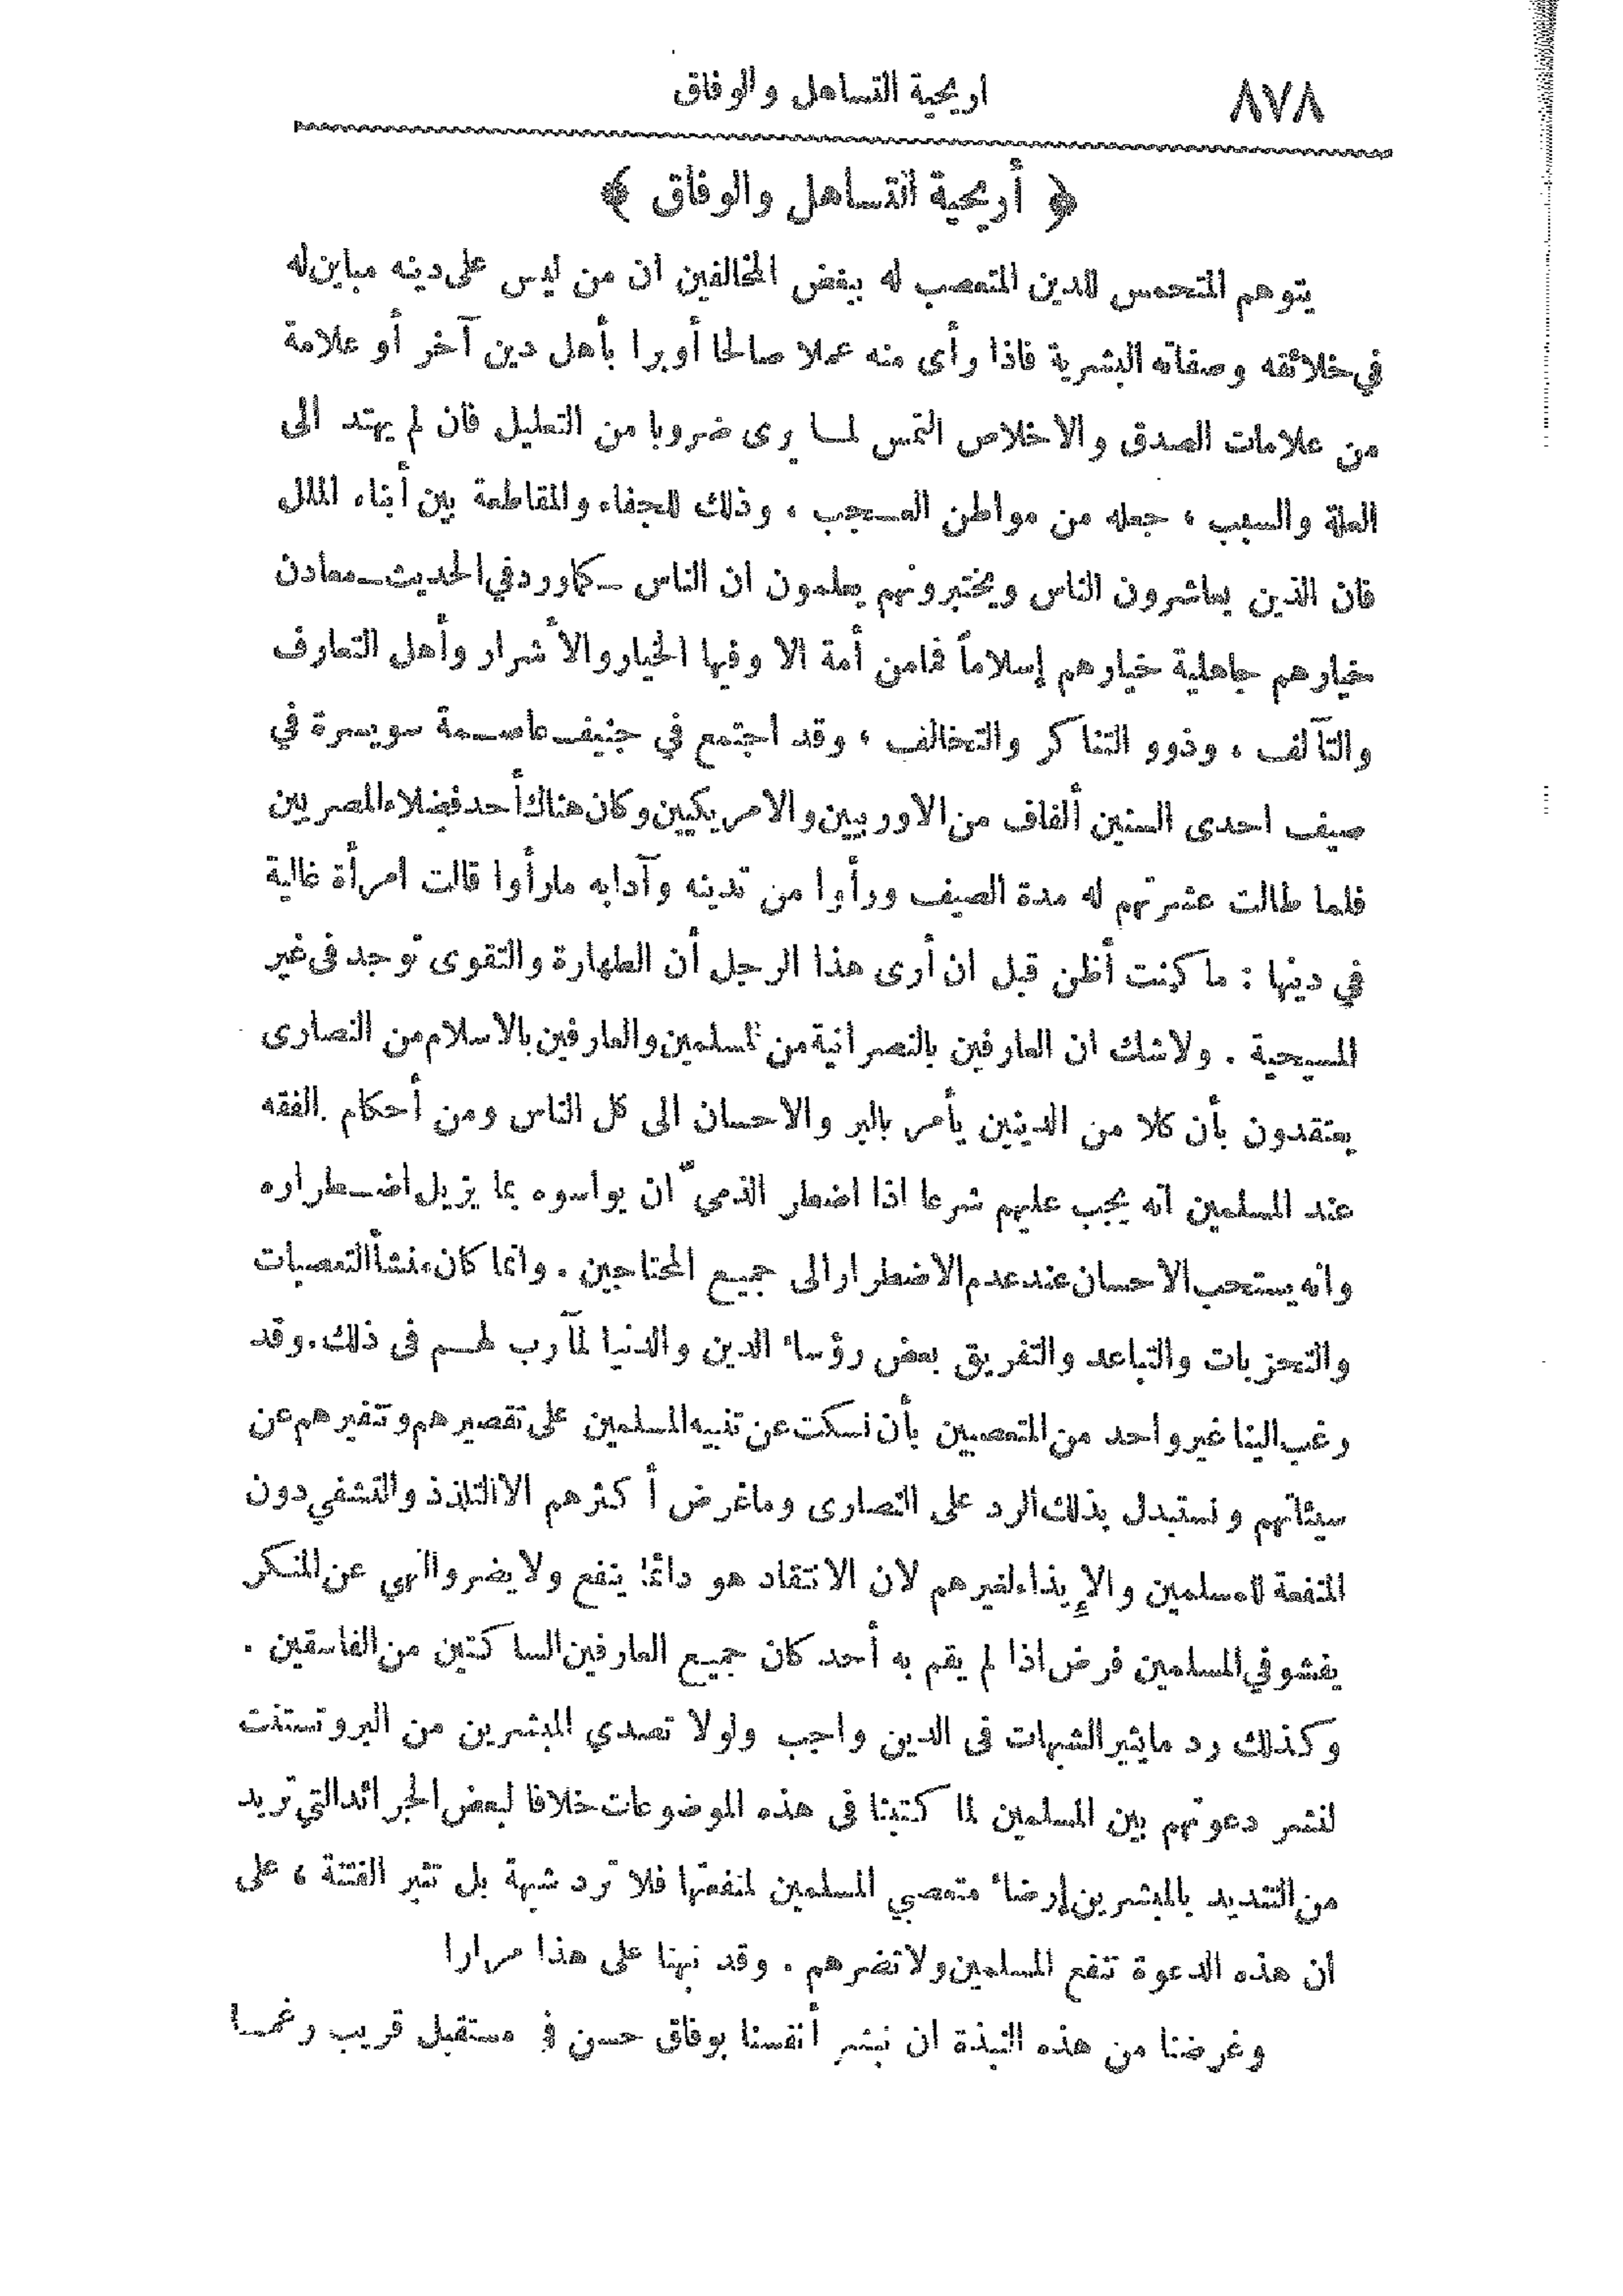 ٨٧٨
اريحية التساهل والوفاق
﴿ أريحية التساهل والوفاق ﴾
يتوهم المتحمس للدين المتعصب له ببغض المخالفين ان من ليس على دينه مباين له
في خلائقه وصفاته البشرية فاذا رأى منه عملا صالحا أو برا بأهل دين آخر أو علامة
من علامات الصدق والاخلاص التمس لما يرى ضروبا من التعليل فان لم يهتد الى
العلة والسبب ، جعله من مواطن العجب ، وذلك للجفاء والمقاطعة بين أبناء الملل
فان الذين يعاشرون الناس ويختبرونهم يعلمون ان الناس ــ كما ورد في الحديث ــ معادن
خيارهم جاهلية خيارهم إسلاماً فما من أمة الا وفيها الخيار والأشرار وأهل التعارف
والتآلف ، وذوو التناكر والتخالف ، وقد اجتمع في جنيف عاصمة سويسرة في
صيف احدى السنين ألفاف من الاوربيين والامريكيين وكان هناك أحد فضلاء المصريين
فلما طالت عشرتهم له مدة الصيف ورأوا من تدينه وآدابه مارأوا قالت امرأة غالية
في دينها : ما كنت أظن قبل ان أرى هذا الرجل أن الطهارة والتقوى توجد فى غير
المسيحية . ولاشك ان العارفين بالنصرانية من المسلمين والعارفين بالاسلام من النصارى
يعتقدون بأن كلا من الدينين يأمر بالبر والاحسان الى كل الناس ومن أحكام الفقه
عند المسلمين انه يجب عليهم شرعا اذا اضطر الذميّ ان يواسوه بما يزيل اضطراره
وانه يستحب الاحسان عند عدم الاضطرار الى جميع المحتاجين . وانما كان منشأ التعصبات
والتحزبات والتباعد والتفريق بعض رؤساء الدين والدنيا لمآرب لهم فى ذلك . وقد
رغب الينا غير واحد من المتعصبين بأن نسكت عن تنبيه المسلمين على تقصيرهم وتنفيرهم عن
سيئاتهم ونستبدل بذلك الرد على النصارى وما غرض أكثرهم الا التلذذ والتشفي دون
المنفعة للمسلمين والإيذاء لغيرهم لان الانتقاد هو دائما ينفع ولا يضر والنهي عن المنكر
يفشو في المسلمين فرض اذا لم يقم به أحد كان جميع العارفين الساكتين من الفاسقين .
وكذلك رد ما يثير الشبهات فى الدين واجب ولولا تصدي المبشرين من البروتستنت
لنشر دعوتهم بين المسلمين لما كتبنا فى هذه الموضوعات خلافا لبعض الجرائد التي تريد
من التنديد بالمبشرين إرضاء متعصبي المسلمين لمنفعتها فلا ترد شبهة بل تثير الفتنة ، على
ان هذه الدعوة تنفع المسلمين ولا تضرهم . وقد نبهنا على هذا مرارا
وغرضنا من هذه النبذة ان نبشر أنفسنا بوفاق حسن في مستقبل قريب رغما